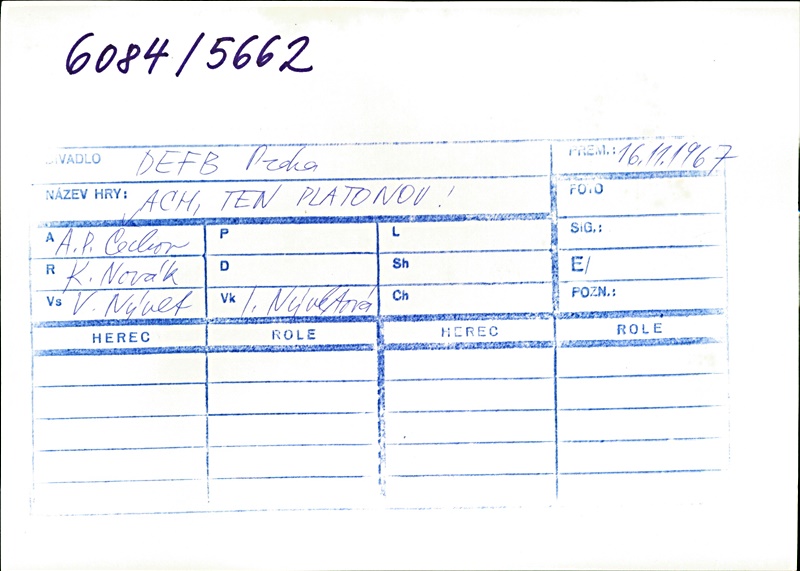 6084/5662
DIVADLO DEFB Praha PREM.: 16.11.1967
NÁZEV HRY: ACH, TEN PLATONOV! FOTO
A A.P. Čechov P L SIG.:
R K. Novák D Sh E/
Vs V. Nývlt Vk I. Nývltová Ch POZN.:
HEREC ROLE HEREC ROLE